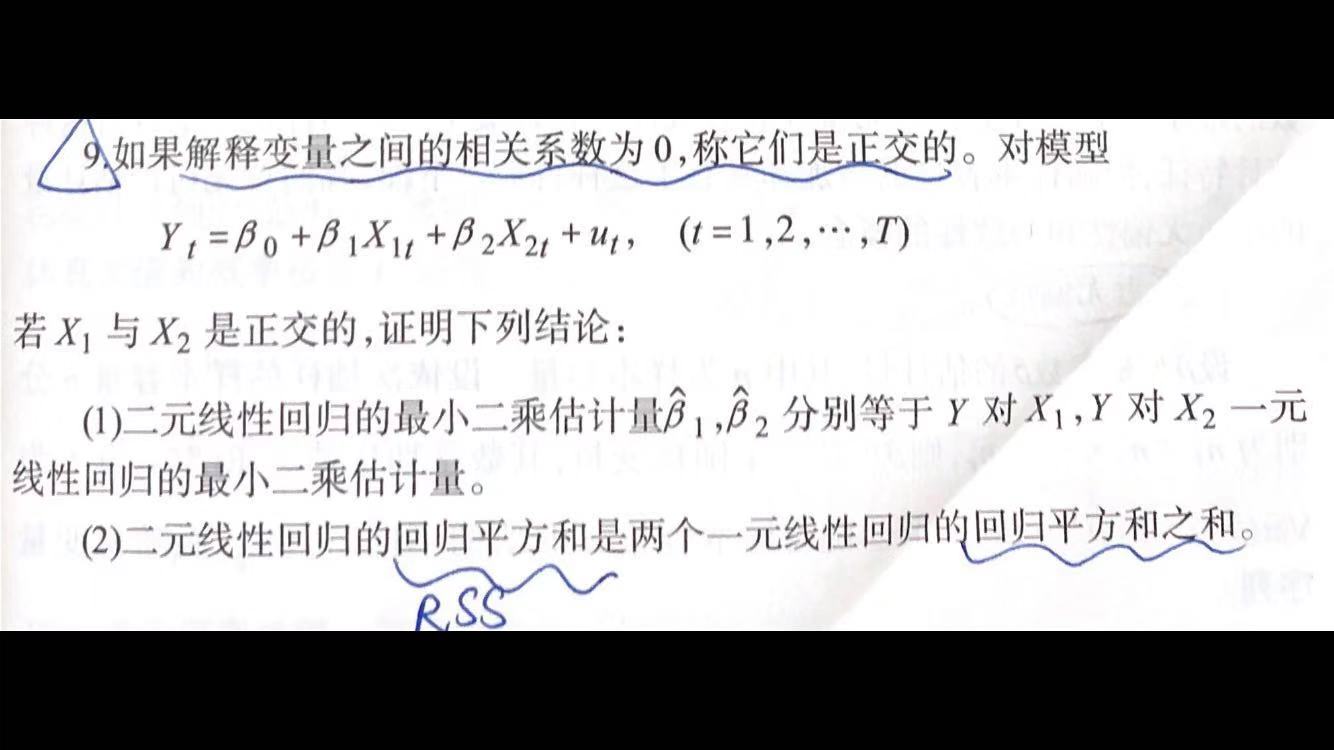 9.如果解释变量之间的相关系数为0,称它们是正交的。对模型
Y_t = β_0 + β_1X_{1t} + β_2X_{2t} + u_t, (t=1,2,⋯,T)
若X_1与X_2是正交的,证明下列结论:
(1)二元线性回归的最小二乘估计量β̂_1,β̂_2分别等于Y对X_1,Y对X_2一元
线性回归的最小二乘估计量。
(2)二元线性回归的回归平方和是两个一元线性回归的回归平方和之和。
RSS